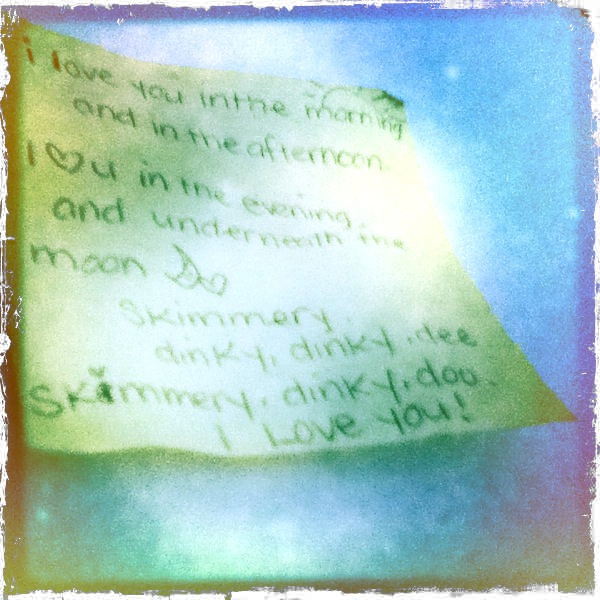 i love you in the morning
and in the afternoon.
I ♡ u in the evening,
and underneath the
moon
Skimmery,
dinky, dinky, dee
Skimmery, dinky, doo.
I Love you!